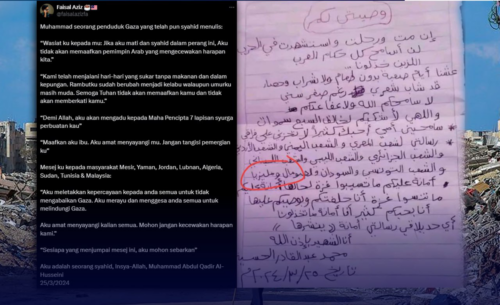 Faisal Aziz
@faisalazizfa
Muhammad seorang penduduk Gaza yang telah pun syahid menulis:
"Wasiat ku kepada mu: Jika aku mati dan syahid dalam perang ini, Aku
tidak akan memaafkan pemimpin Arab yang mengecewakan harapan
kita."
"Kami telah menjalani hari-hari yang sukar tanpa makanan dan dalam
kepungan. Rambutku sudah berubah menjadi kelabu walaupun umurku
masih muda. Semoga Tuhan tidak akan memaafkan kamu dan tidak
akan memberkati kamu."
"Demi Allah, aku akan mengadu kepada Maha Pencipta 7 lapisan syurga
perbuatan kau"
"Maafkan aku, Ibu. Aku amat menyayangi mu. Jangan tangisi pemergian
ku"
Mesej ku kepada masyarakat Mesir, Yaman, Jordan, Lubnan, Algeria,
Sudan, Tunisia & Malaysia:
"Aku meletakkan kepercayaan kepada anda semua untuk tidak
mengabaikan Gaza. Aku merayu dan menggesa anda semua untuk
melindungi Gaza.
Aku amat menyayangi kalian semua. Mohon jangan kecewakan harapan
kami."
"Sesiapa yang menjumpai mesej ini, aku mohon sebarkan"
Aku adalah seorang syahid, Insya-Allah, Muhammad Abdul Qadir Al-
Husseini
25/3/2024
وصيتي لكم
إن مت ورحلت واستشهدت في الحرب
العرب
اللذين خذلونا
عشنا أيام صعبة بدون طعام ولا شراب وحصار
قد شاب شعري رغم صغر سني
لا سامحكم الله ولا عفا عنكم
سامحيني أمي أحبك كثيرا لا تحزني على
رسالتي لشعب المصري والشعب اليمني والشعب
والشعب الجزائري والشعب
و الشعب التونسي والسودان و وماليزيا
أمانة عليكم ما تخونوا غزة
ما تنسوا غزة أنا
أنا بحبكم كثير
أي حد يلاقي رسالتي أمانة ينشرها
أنا الشهيد بإذن الله
محمد عبد القادر الحسيني
تاريخ ٢٠٢٤/٣/٢٥